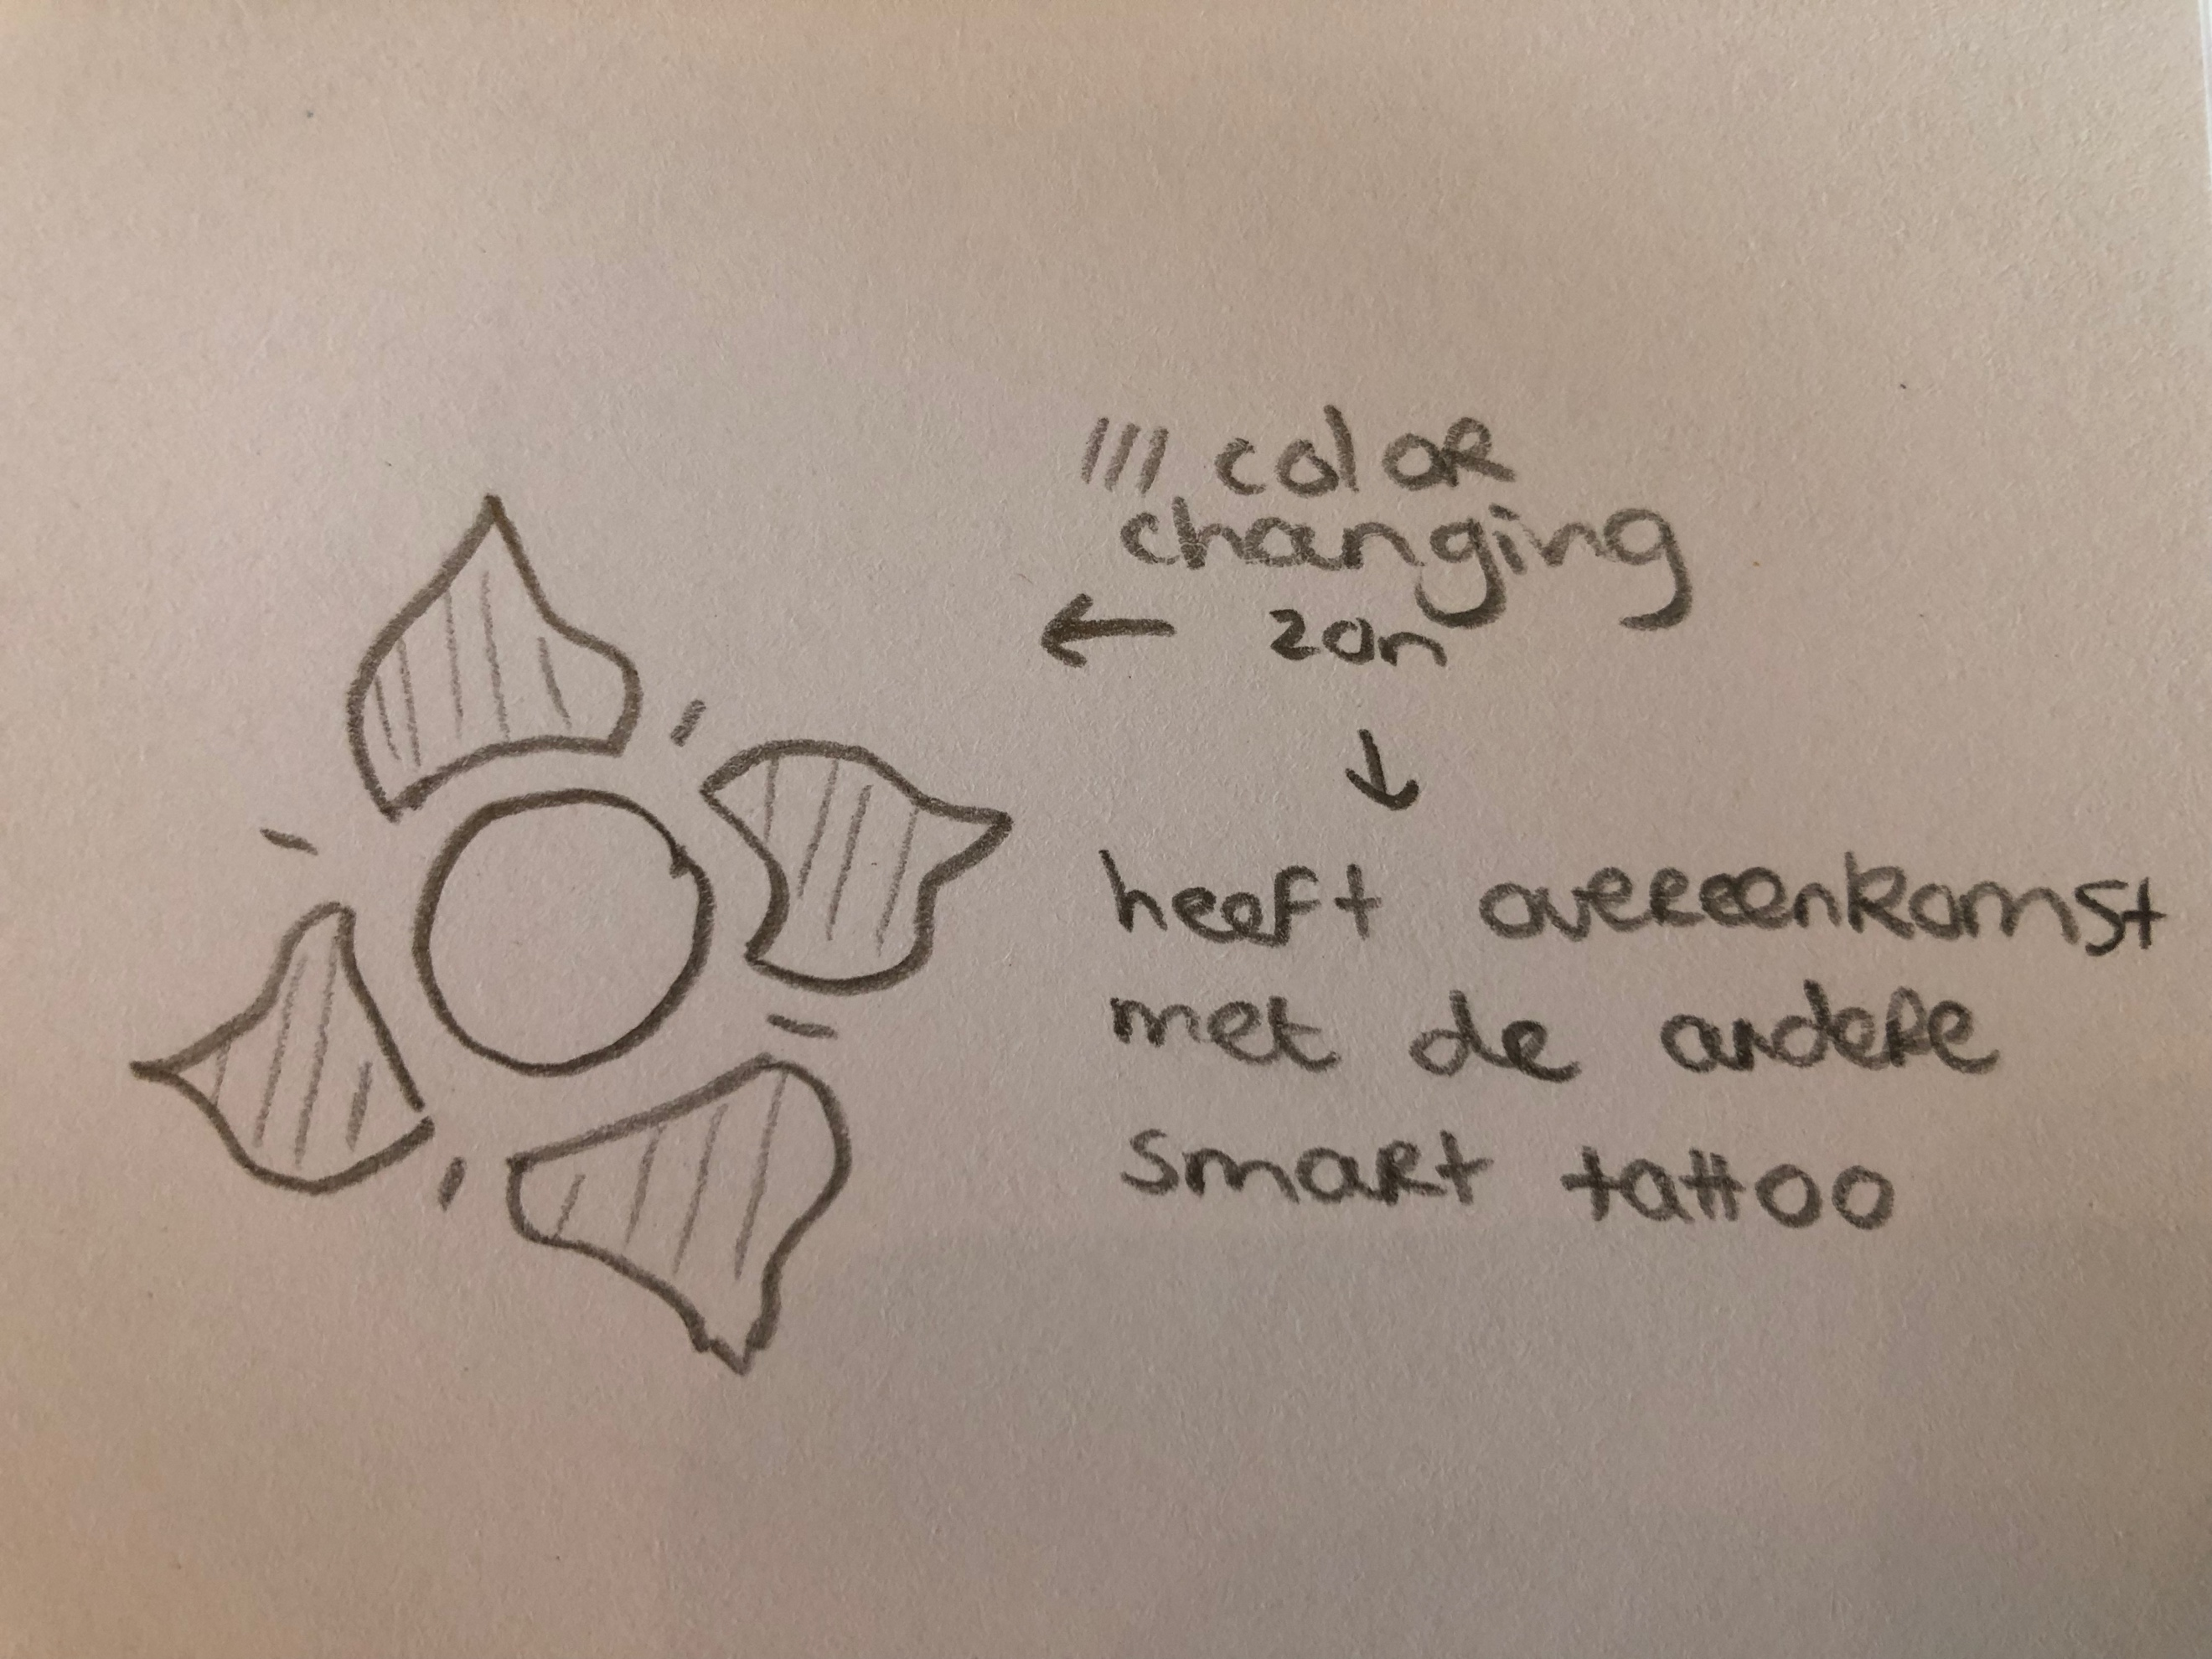 /// color
changing
← zon
↓
heeft overeenkomst
met de andere
smart tattoo